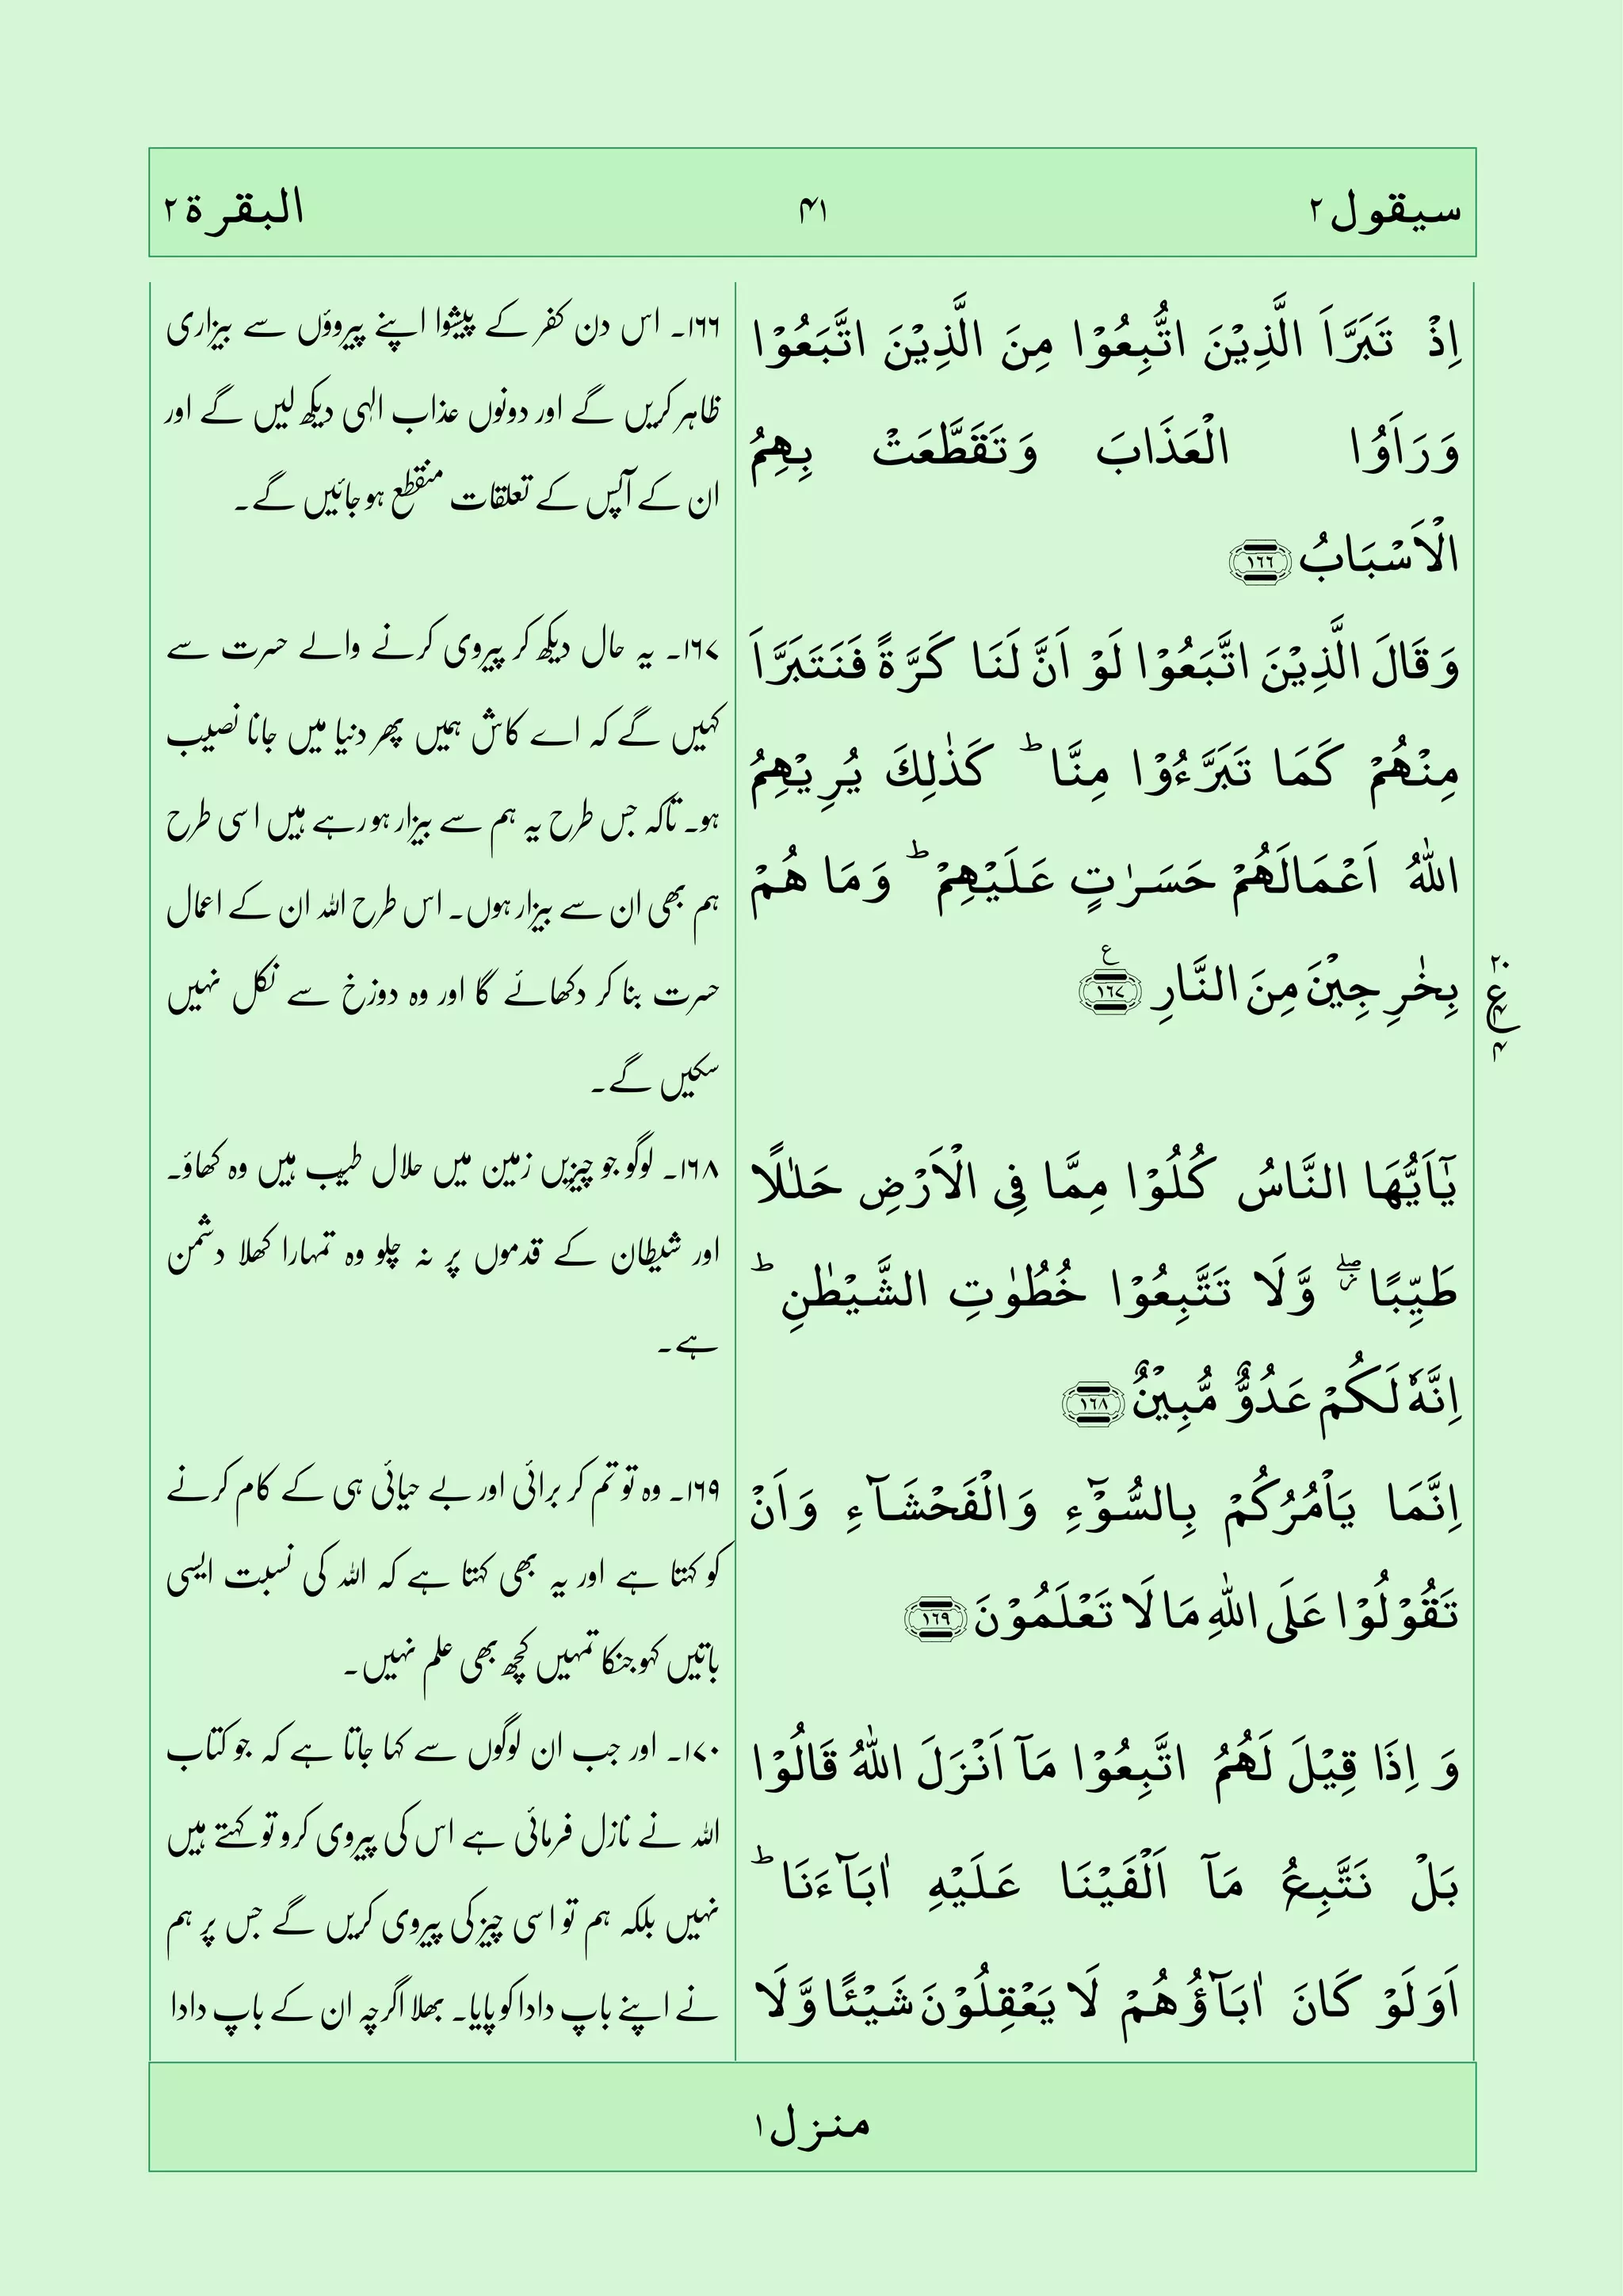 سیقول۲
۴۱
البقرة۲
اِذۡ تَبَرَّاَ الَّذِيۡنَ اتُّبِعُوۡا مِنَ الَّذِيۡنَ اتَّبَعُوۡا
وَرَاَوُا الۡعَذَابَ وَتَقَطَّعَتۡ بِهِمُ
الۡاَسۡبَابُ ﴿۱۶۶﴾
وَقَالَ الَّذِيۡنَ اتَّبَعُوۡا لَوۡ اَنَّ لَنَا كَرَّةً فَنَتَبَرَّاَ
مِنۡهُمۡ كَمَا تَبَرَّءُوۡا مِنَّا ؕ كَذٰلِكَ يُرِيۡهِمُ
اللّٰهُ اَعۡمَالَهُمۡ حَسَرٰتٍ عَلَيۡهِمۡ ؕ وَمَا هُمۡ
بِخٰرِجِيۡنَ مِنَ النَّارِ ﴿۱۶۷﴾ ع
۲۰
ع
۴
يٰۤاَيُّهَا النَّاسُ كُلُوۡا مِمَّا فِى الۡاَرۡضِ حَلٰلًا
طَيِّبًا ۖ وَّلَا تَتَّبِعُوۡا خُطُوٰتِ الشَّيۡطٰنِ ؕ
اِنَّهٗ لَكُمۡ عَدُوٌّ مُّبِيۡنٌ ﴿۱۶۸﴾
اِنَّمَا يَاۡمُرُكُمۡ بِالسُّوۡٓءِ وَالۡفَحۡشَآءِ وَاَنۡ
تَقُوۡلُوۡا عَلَى اللّٰهِ مَا لَا تَعۡلَمُوۡنَ ﴿۱۶۹﴾
وَ اِذَا قِيۡلَ لَهُمُ اتَّبِعُوۡا مَآ اَنۡزَلَ اللّٰهُ قَالُوۡا
بَلۡ نَتَّبِعُ مَآ اَلۡفَيۡنَا عَلَيۡهِ اٰبَآءَنَا ؕ
اَوَلَوۡ كَانَ اٰبَآؤُهُمۡ لَا يَعۡقِلُوۡنَ شَيۡـًٔا وَّلَا
۱۶۶۔ اس دن کفر کے پیشوا اپنے پیرووں سے بیزاری
ظاہر کریں گے اور دونوں عذاب الہٰی دیکھ لیں گے اور
ان کے آپس کے تعلقات منقطع ہو جائیں گے۔
۱۶۷۔ یہ حال دیکھ کر پیروی کرنے والے حسرت سے
کہیں گے کہ اے کاش ہمیں پھر دنیا میں جانا نصیب
ہو۔ تاکہ جس طرح یہ ہم سے بیزار ہو رہے ہیں اسی طرح
ہم بھی ان سے بیزار ہوں۔ اس طرح اللہ ان کے اعمال
حسرت بنا کر دکھائے گا اور وہ دوزخ سے نکل نہیں
سکیں گے۔
۱۶۸۔ لوگو جو چیزیں زمین میں حلال طیب ہیں وہ کھاؤ۔
اور شیطان کے قدموں پر نہ چلو وہ تمہارا کھلا دشمن
ہے۔
۱۶۹۔ وہ تو تم کر برائی اور بے حیائی ہی کے کام کرنے
کو کہتا ہے اور یہ بھی کہتا ہے کہ اللہ کی نسبت ایسی
باتیں کہو جنکا تمہیں کچھ بھی علم نہیں۔
۱۷۰۔ اور جب ان لوگوں سے کہا جاتا ہے کہ جو کتاب
اللہ نے نازل فرمائی ہے اس کی پیروی کرو تو کہتے ہیں
نہیں بلکہ ہم تو اسی چیز کی پیروی کریں گے جس پر ہم
نے اپنے باپ دادا کو پایا۔ بھلا اگرچہ ان کے باپ دادا
منزل۱